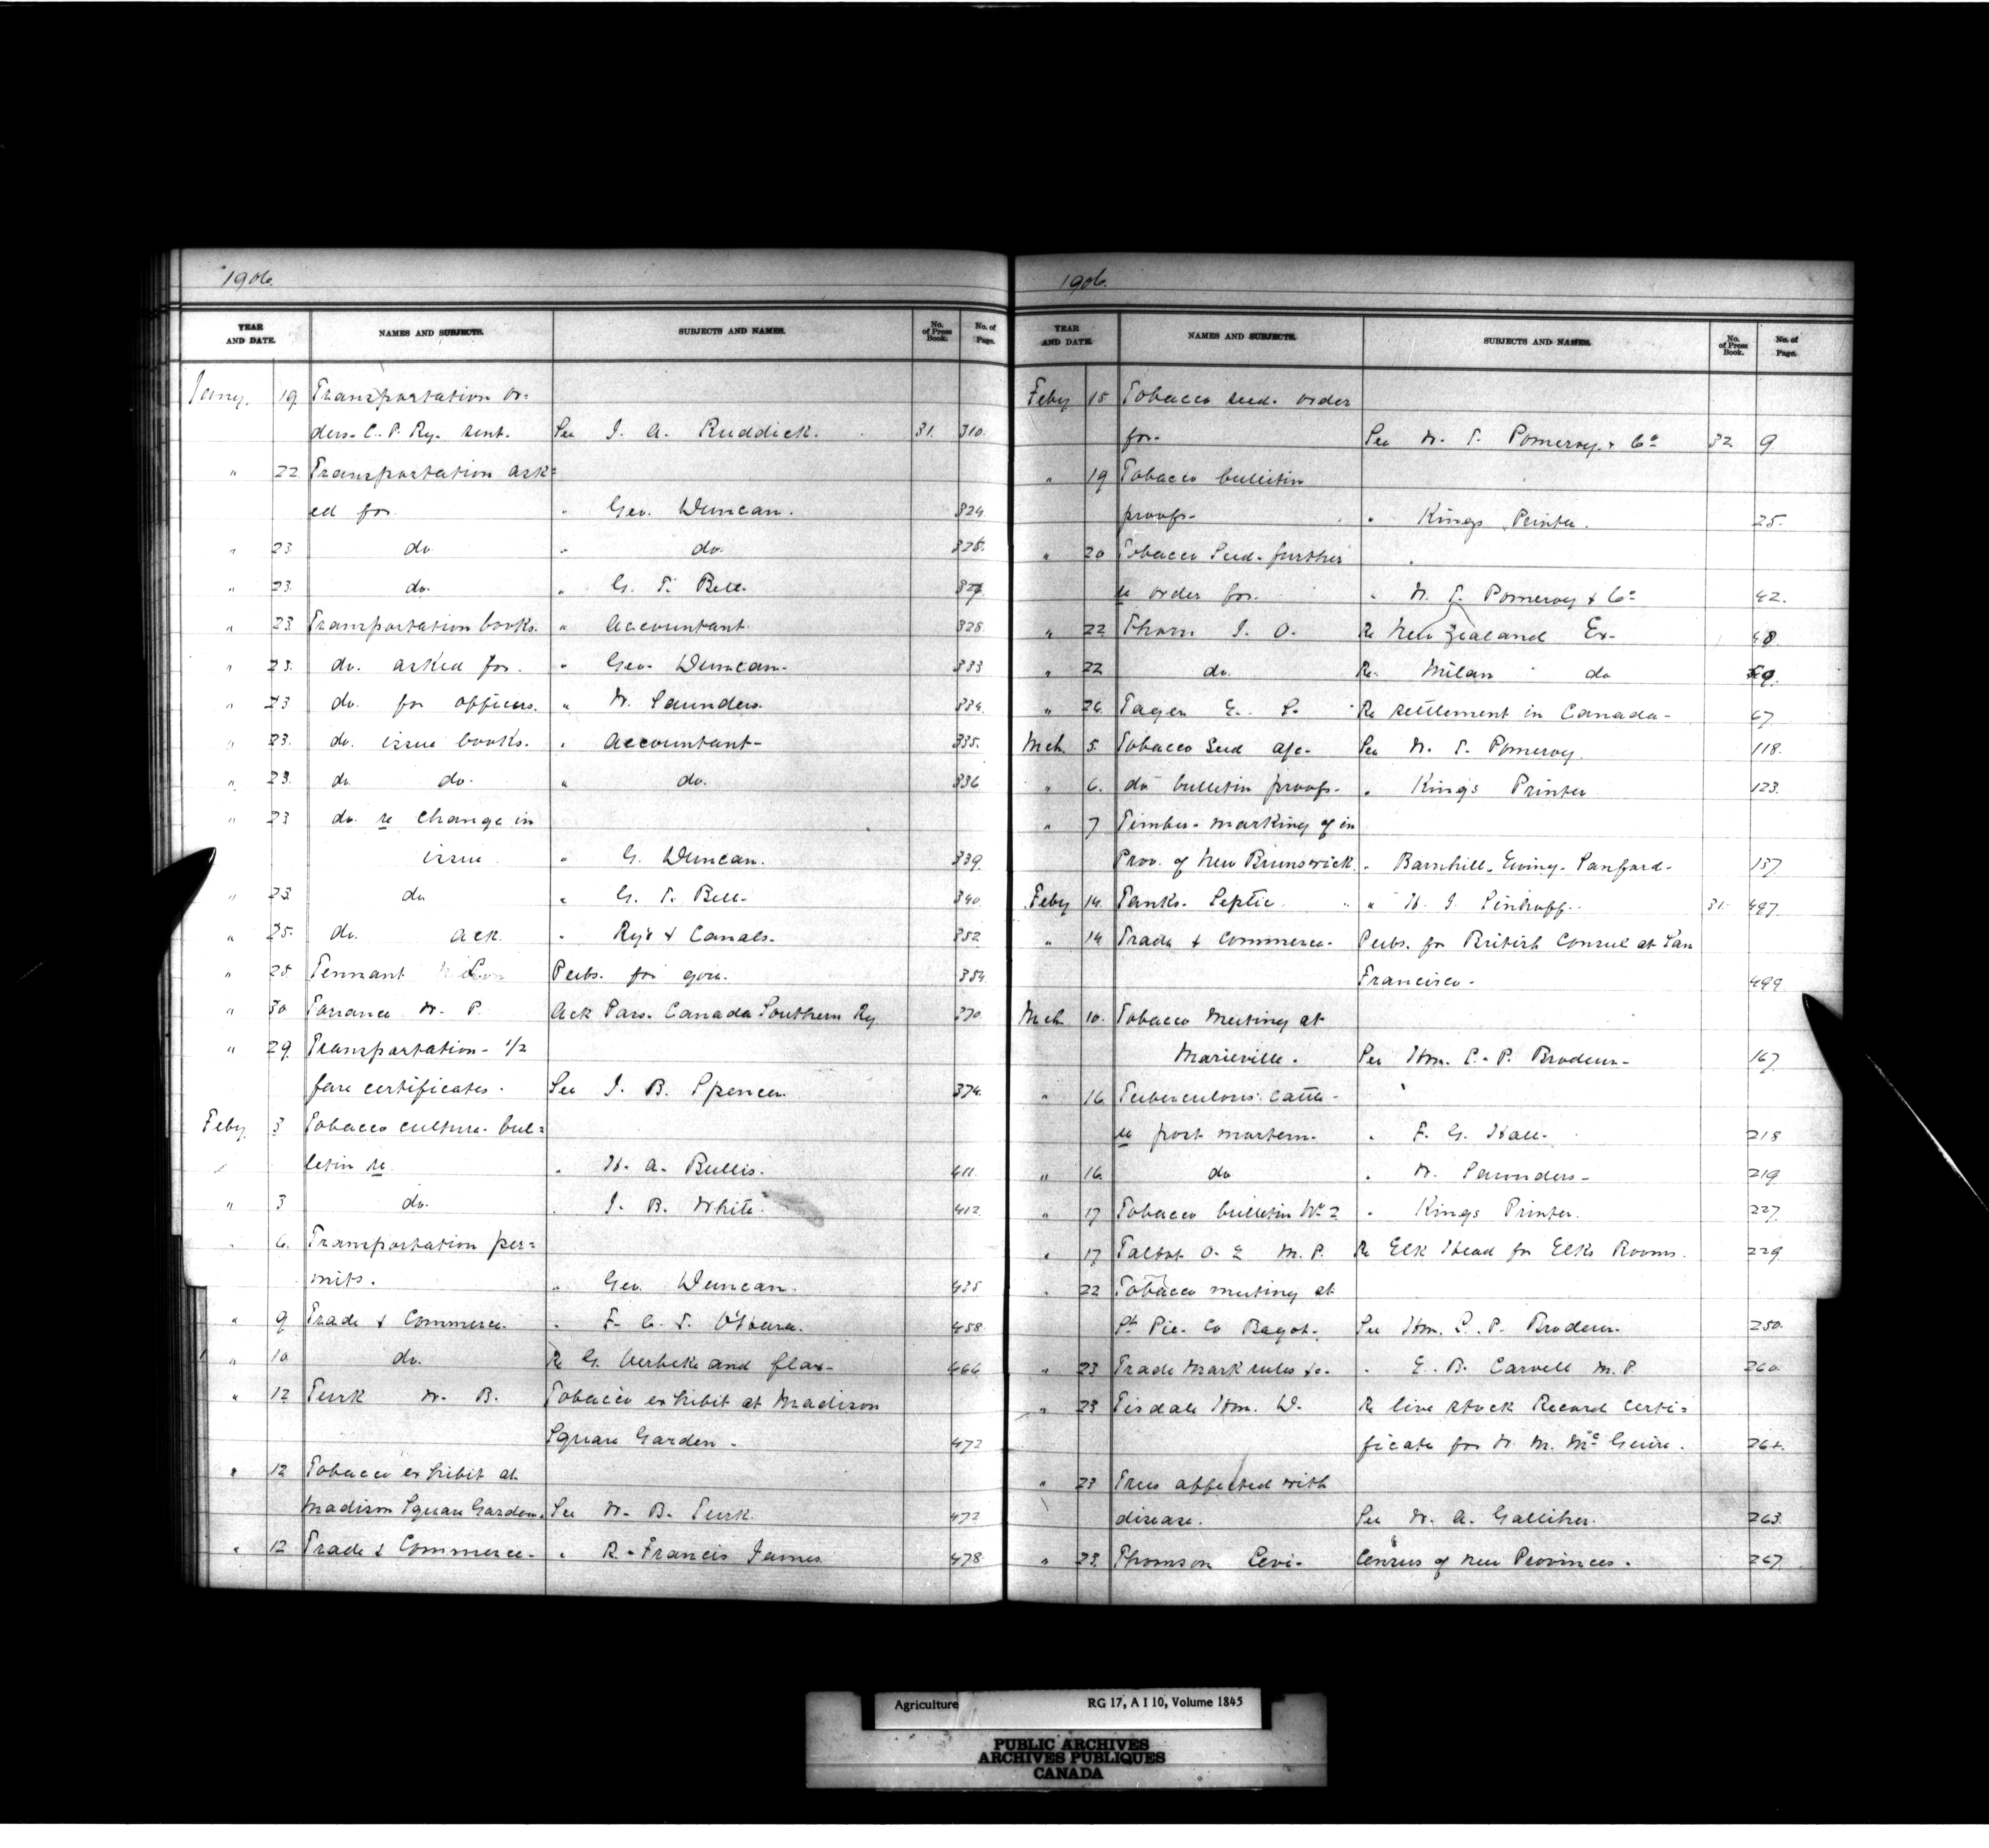 1906.
YEAR AND DATE. NAMES AND SUBJECTS. SUBJECTS AND NAMES. No. of Press Book. No. of Page.
Jany. 19 Transportation or-
ders- C. P. Ry. sent. See J. A. Ruddick. 31. 310.
" 22 Transportation ask=
ed for. " Geo. Duncan. 324.
" 23 do. " do. 326.
" 23. do. " G. T. Bell. 327.
" 23. Transportation books. " Accountant. 328.
" 23. do. asked for. " Geo. Duncan. 333
" 23 do. for officers. " W. Saunders. 334.
" 23. do. issue books. " Accountant- 335.
" 23. do. do. " do. 336
" 23 do. re change in
issue. " G. Duncan. 339.
" 23. do " G. T. Bell. 340.
" 25. do. ack. " Rys & Canals. 352
" 25 Tennant Pubs. for gov. 354.
" 30 Torrance W. P. Ack Pass. Canada Southern Ry. 370.
" 29. Transportation- 1/2
fare certificates. See J. B. Spencer 374.
Feby. 3 Tobacco culture. bul=
letin re. " H. A. Bullis. 411.
" 3 do. " J. B. White. 412.
" 6. Transportation per=
mits. " Geo. Duncan. 435
" 9 Trade & Commerce. " F. C. T. O'Hara. 458.
" 10 do. Re G. Verbeke and flax- 466
" 12 Turk W. B. Tobacco exhibit at Madison
Square Garden. 472
" 12 Tobacco exhibit at
Madison Square Garden. See W. B. Turk. 472
" 12 Trade & Commerce. " R. Francis James 478.
1906.
YEAR AND DATE. NAMES AND SUBJECTS. SUBJECTS AND NAMES. No. of Press Book. No. of Page.
Feby 15 Tobacco seed. order
for- See W. T. Pomeroy & Co 32 9.
" 19 Tobacco bulletin
proofs- " Kings Printer. 25.
" 20 Tobacco Seed- further
re order for. " W. T. Pomeroy & Co 42.
" 22 Thorn J. O. Re New Zealand Ex- 48.
" 22 do. Re. Milan do
" 26. Tager E. S. Re settlement in Canada- 67
Mch 5. Tobacco Seed a/c- See W. T. Pomeroy. 118.
" 6. do bulletin proofs- " King's Printer 123.
" 7 Timber- marking of in
Prov. of New Brunswick. " Barnhill, Ewing, Sanford- 137
Feby 14. Tanks. Septic. " 31. 497.
" 14 Trade & Commerce- Pubs. for British Consul at San
Francisco- 499.
Mch 10. Tobacco Meeting at
Marieville. See Hon. L. P. Brodeur- 167
" 16 Tuberculous cattle-
re post mortem- " F. G. Hall- 218
" 16. do " W. Saunders- 219
" 17 Tobacco bulletin No 2 " Kings Printer. 227.
" 17 Talbot O. E M. P. Re Elk Head for Elks Rooms. 229.
" 22 Tobacco meeting at
St. Pie. Co Bagot. See Hon. L. P. Brodeur. 250.
" 23 Trade Mark rules &c- " E. B. Carvell M. P. 260.
" 23 Tisdale Hon. D. Re live stock Record Certi=
ficate for W. M. McGuire. 264.
" 23 Trees affected with
disease. See W. A. Galliher. 263.
" 23. Thomson Levi- Census of new Provinces. 267.
Agriculture RG 17, A I 10, Volume 1845
PUBLIC ARCHIVES
ARCHIVES PUBLIQUES
CANADA